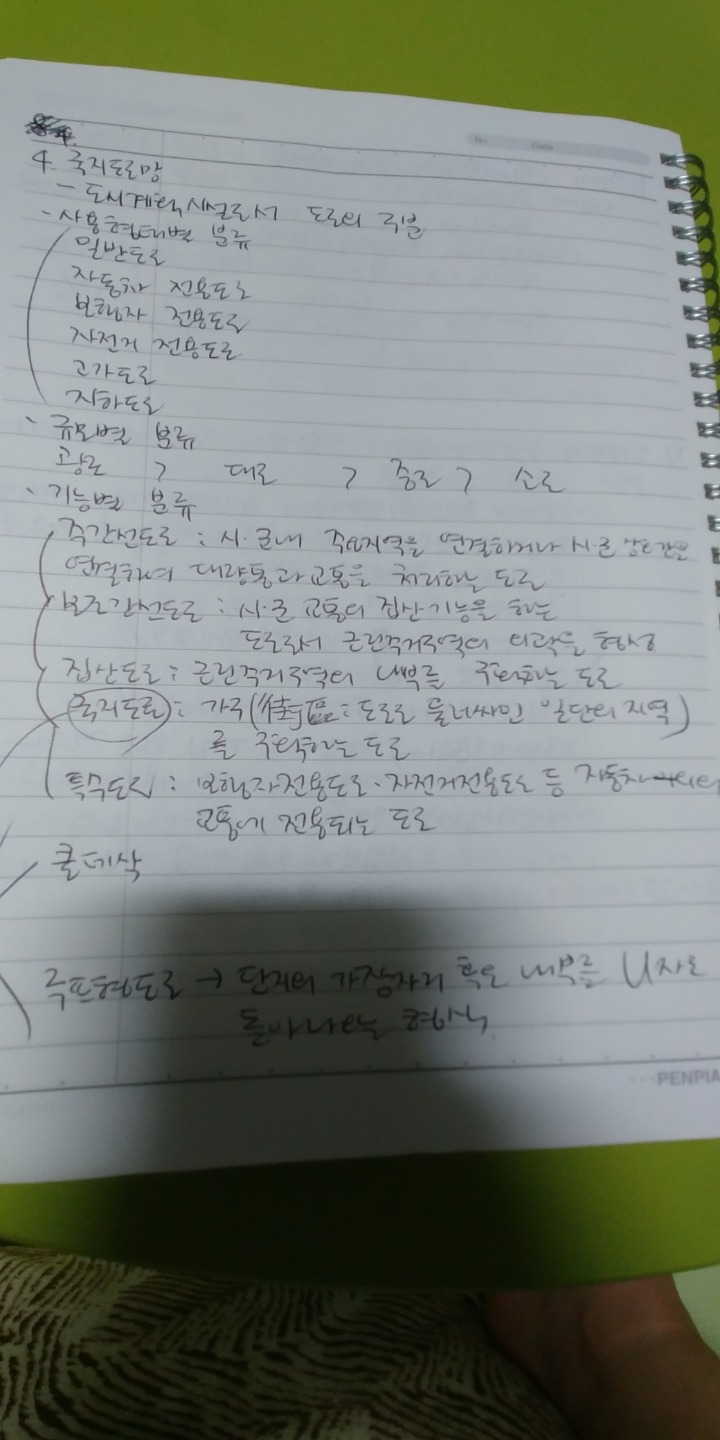 No. Date
4. 국지도로망
- 도시계획시설로서 도로의 구분
· 사용형태별 분류
일반도로
자동차 전용도로
보행자 전용도로
자전거 전용도로
고가도로
지하도로
· 규모별 분류
광로 > 대로 > 중로 > 소로
· 기능별 분류
주간선도로 : 시·군내 주요지역을 연결하거나 시·군 상호간을
연결하여 대량통과교통을 처리하는 도로
보조간선도로 : 시·군 교통의 집산기능을 하는
도로로서 근린주거구역의 외곽을 형성
집산도로 : 근린주거구역의 내부를 구획하는 도로
국지도로 : 가구(街區 : 도로로 둘러싸인 일단의 지역)
를 구획하는 도로
특수도로 : 보행자전용도로·자전거전용도로 등 자동차 외의
교통에 전용되는 도로
쿨데삭
루프형도로 → 단지의 가장자리 혹은 내부를 U자로
돌아나오는 형식
PENPIA